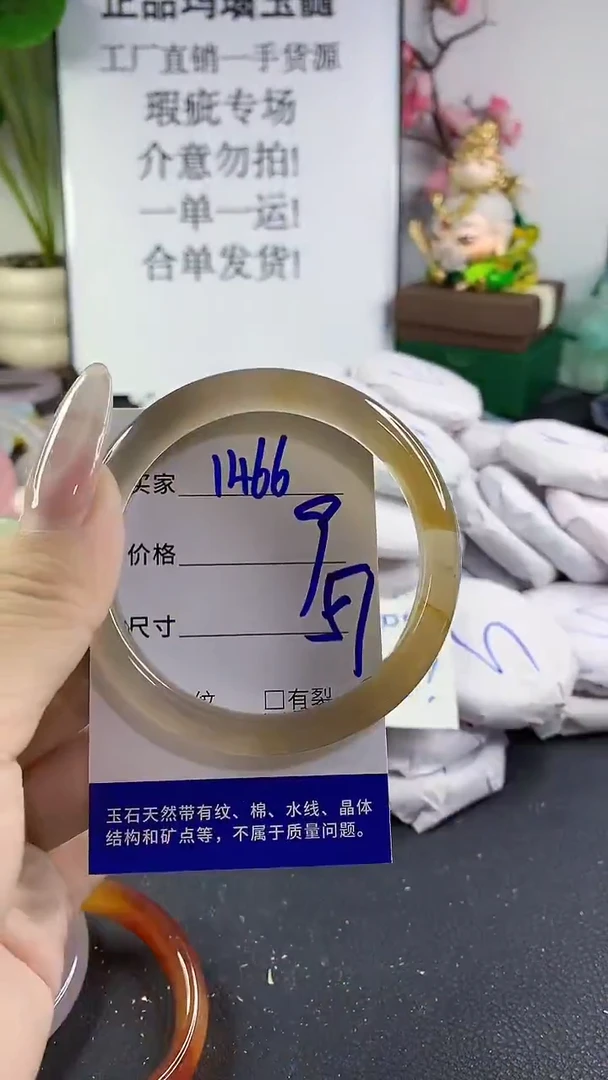 正品玛瑙玉髓
工厂直销一手货源
瑕疵专场
介意勿拍!
一单一运!
合单发货!
买家 1466
价格 9
尺寸 57
纹 □有裂
玉石天然带有纹、棉、水线、晶体
结构和矿点等，不属于质量问题。